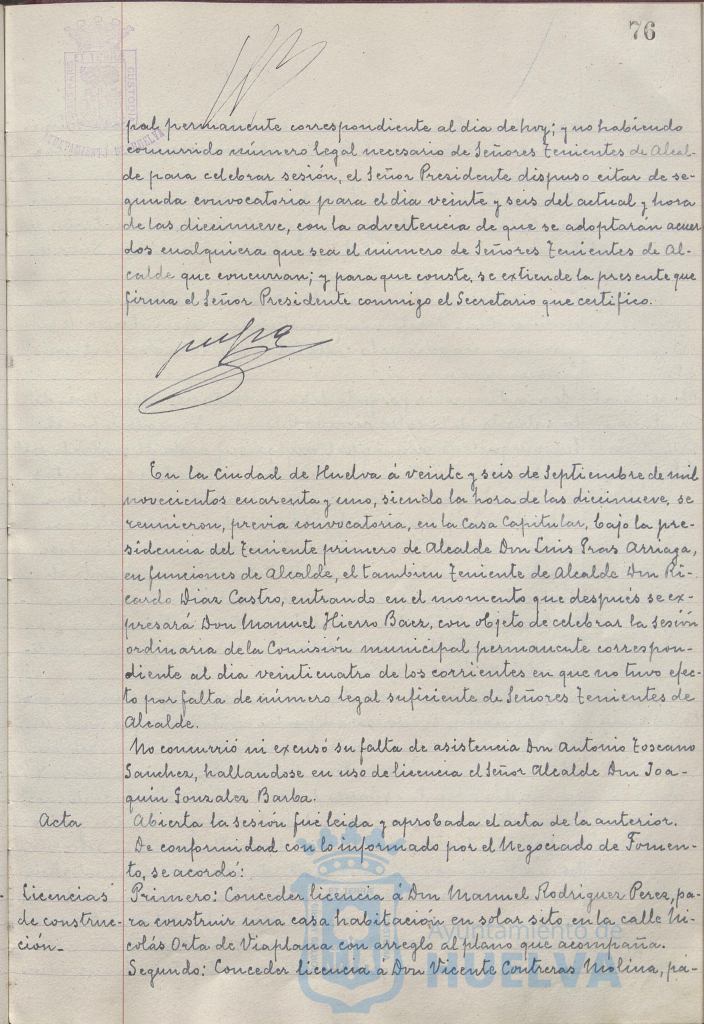 76
pal permanente correspondiente al dia de hoy; y no habiendo
concurrido número legal necesario de Señores Tenientes de Alcal-
de para celebrar sesión, el Señor Presidente dispuso citar de se-
gunda convocatoria para el dia veinte y seis del actual y hora
de las diecinueve, con la advertencia de que se adoptarán acuer
dos cualquiera que sea el número de Señores Tenientes de Al-
calde que concurran; y para que conste, se extiende la presente que
firma el Señor Presidente conmigo el Secretario que certifico.
En la Ciudad de Huelva á veinte y seis de Septiembre de mil
novecientos cuarenta y uno, siendo la hora de las diecinueve, se
reunieron, previa convocatoria, en la Casa Capitular, bajo la pre-
sidencia del Teniente primero de Alcalde Don Luis Pras Arriaga,
en funciones de Alcalde, el tambien Teniente de Alcalde Don Ri-
cardo Diaz Castro, entrando en el momento que después se ex-
presará Don Manuel Hierro Baez, con objeto de celebrar la sesión
ordinaria de la Comisión municipal permanente correspon-
diente al dia veinticuatro de los corrientes en que no tuvo efec-
to por falta de número legal suficiente de Señores Tenientes de
Alcalde.
No concurrió ni excusó su falta de asistencia Don Antonio Toscano
Sanchez, hallandose en uso de licencia el Señor Alcalde Don Joa-
quin Gonzalez Barba.
Acta Abierta la sesión fue leida y aprobada el acta de la anterior.
De conformidad con lo informado por el Negociado de Fomen-
to, se acordó:
Licencias Primero: Conceder licencia á Don Manuel Rodriguez Perez, pa-
de construc- ra construir una casa habitación en solar sito en la calle Ni-
ción_ colás Orta de Viaplana con arreglo al plano que acompaña.
Segundo: Conceder licencia á Don Vicente Contreras Molina, pa-
Ayuntamiento de
HUELVA